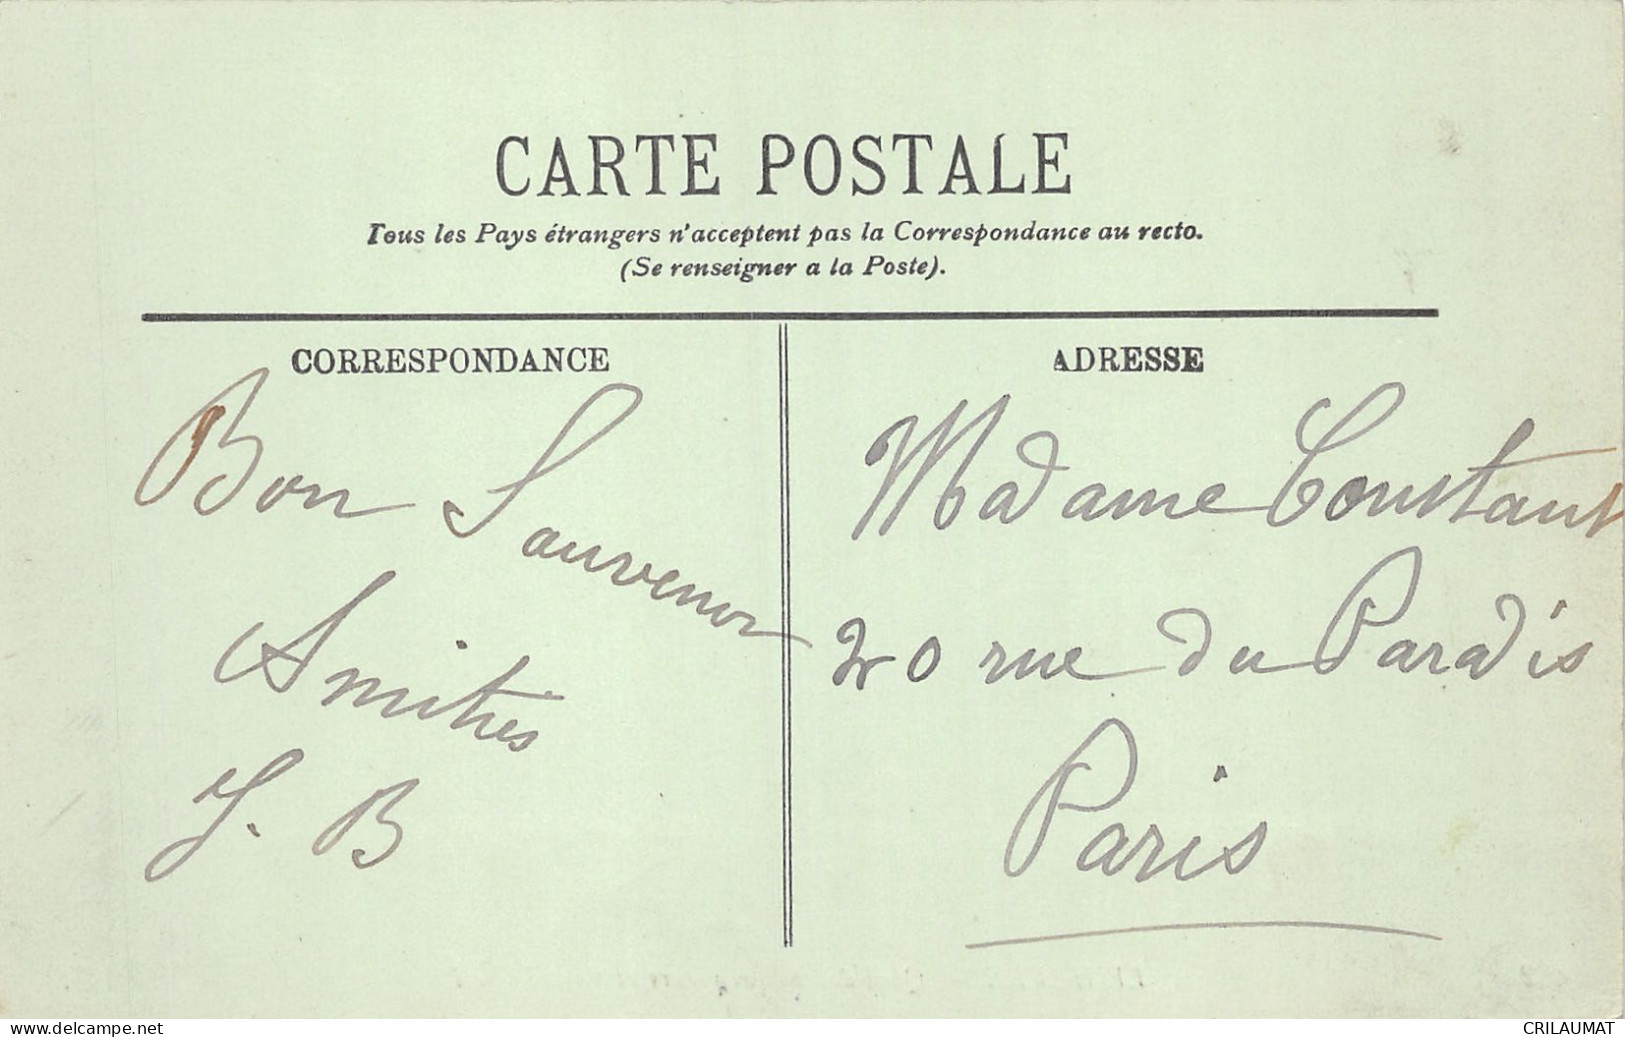 CARTE POSTALE
Tous les Pays étrangers n'acceptent pas la Correspondance au recto.
(Se renseigner a la Poste).
CORRESPONDANCE
Bon Souvenir
Amitiés
J. B
ADRESSE
Madame Constant
20 rue du Paradis
Paris
www.delcampe.net
CRILAUMAT